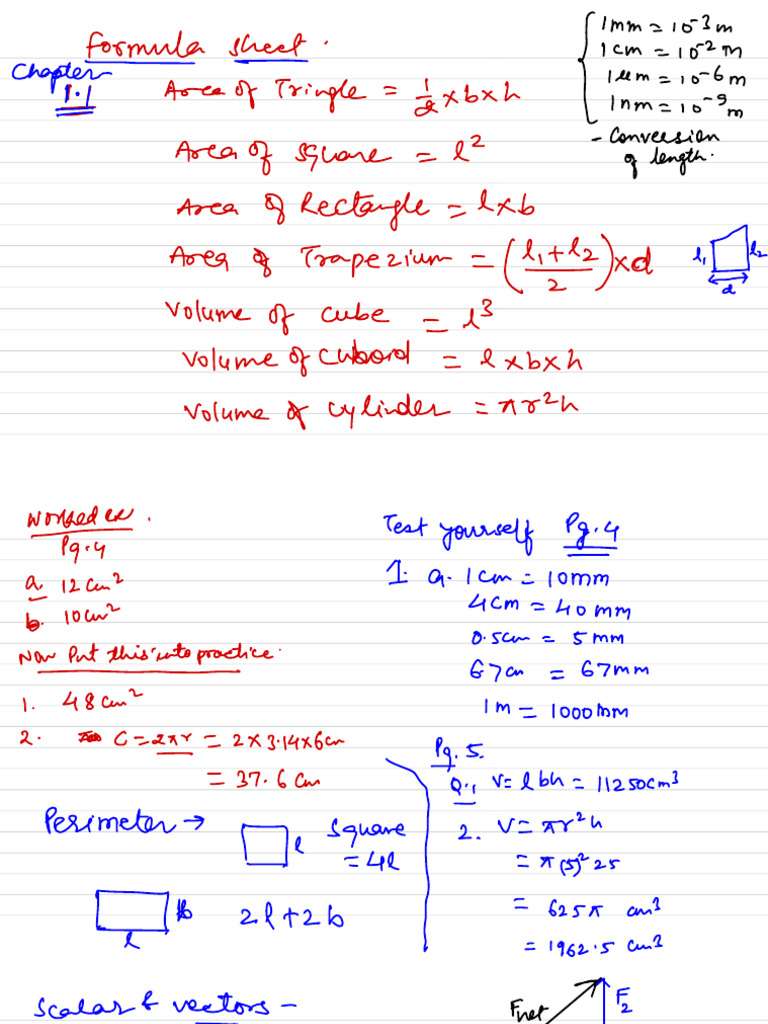 Formula sheet.
Chapter
1.1
Area of Tringle = 1/2 × b × h
Area of square = l²
Area of Rectangle = l×b
Area of Trapezium = (l₁+l₂/2)×d
Volume of cube = l³
Volume of cuboid = l×b×h
Volume of cylinder = πr²h
1mm = 10⁻³m
1cm = 10⁻² m
1μm = 10⁻⁶ m
1nm = 10⁻⁹ m
- Conversion
of length.
l₁ l₂
d
Worked ex.
Pg.4
a. 12cm²
b. 10cm²
Now Put this into practice.
1. 48cm²
2. C = 2πr = 2×3.14×6cm
= 37.6cm
Perimeter →
l
square
= 4l
b
l
2l+2b
Test yourself Pg.4
1. a. 1cm = 10mm
4cm = 40mm
0.5cm = 5mm
6.7cm = 67mm
1m = 1000mm
Pg.5.
Q.1 V= lbh = 11250cm³
2. V = πr²h
= π(5)²25
= 625π cm³
= 1962.5 cm³
Scalar & vectors -
Fnet
F₂